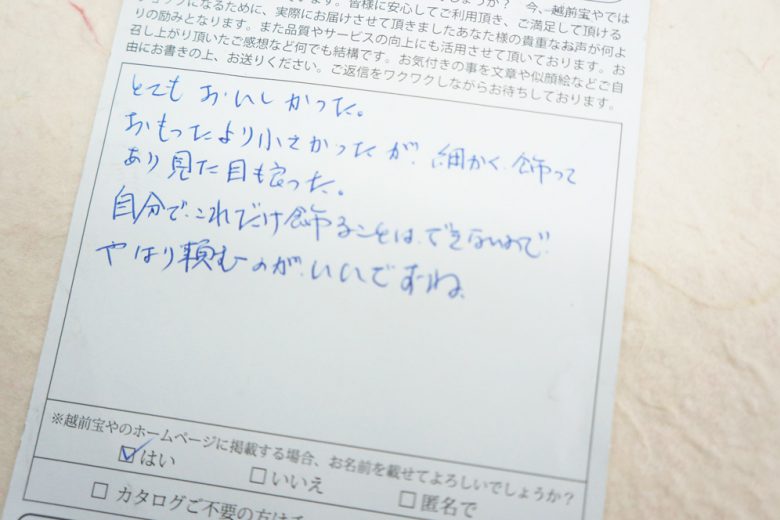 今、越前宝やでは
になるために、実際にお届けさせて頂きましたあなた様の貴重なお声が何よ
りの励みとなります。また品質やサービスの向上にも活用させて頂いております。お
召し上がり頂いたご感想など何でも結構です。お気付きの事を文章や似顔絵などご自
由にお書きの上、お送りください。ご返信をワクワクしながらお待ちしております。
とてもおいしかった。
おもったより小さかったが、細かく飾って
あり見た目も良った。
自分でこれだけ飾ることは、できないので
やはり頼むのが、いいですね。
※越前宝やのホームページに掲載する場合、お名前を載せてよろしいでしょうか?
☑はい □いいえ □匿名で
□カタログご不要の方は